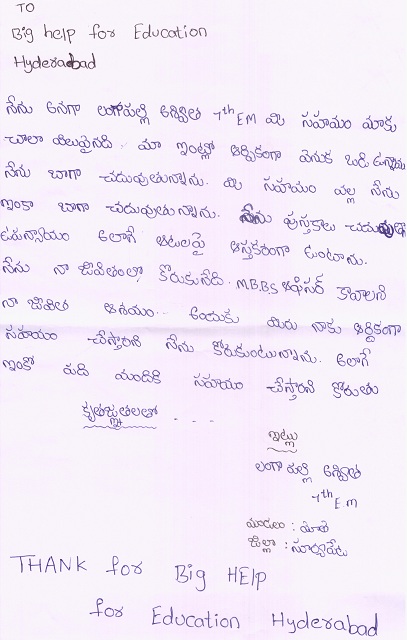 TO
Big help for Education
Hyderabad
నేను అనగా లంగాపల్లి అశ్విత 7th EM మీ సహయం మాకు
చాలా విలువైనది. మా ఇంట్లో ఆర్థికంగా వెనుక బడి ఉన్నాము
నేను బాగా చదువుతున్నాను. మీ సహయం వల్ల నేను
ఇంకా బాగా చదువుతున్నాను. నేను పుస్తకాలు
అలాగే ఆటలపై ఆసక్తకరంగా ఉంటాను.
నేను నా జీవితంలో కోరుకునేది. M.B.BS ఆఫీసర్ కావాలని
నా జీవిత ఆశయం.. అందుకు మీరు నాకు ఆర్థికంగా
సహాయం చేస్తారని నేను కోరుకుంటున్నాను. అలాగే
ఇంకో పది మందికి సహయం చేస్తారని కోరుతు
కృతజ్ఞతలతో - - -
ఇట్లు
లంగా పల్లి అశ్విత
7th E.M
మండలం : మోతె
జిల్లా : సూర్యపేట
THANK for Big HELP
for Education Hyderabad